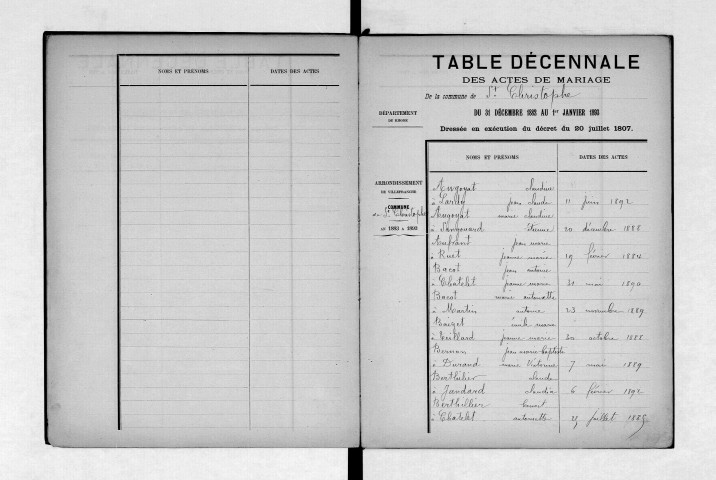 NOMS ET PRÉNOMS DATES DES ACTES
TABLE DÉCENNALE
DES ACTES DE MARIAGE
De la commune de St Christophe
DÉPARTEMENT
DU RHONE
DU 31 DÉCEMBRE 1882 AU 1er JANVIER 1893
Dressée en exécution du décret du 20 juillet 1807.
ARRONDISSEMENT
DE VILLEFRANCHE
COMMUNE
de St Christophe
DE 1883 A 1893
NOMS ET PRÉNOMS DATES DES ACTES
Claudine
à jean Claude 11 juin 1892
marie Claudine
à Sangouard Etienne 20 décembre 1888
Aufrant jean marie
à Ruet jeanne marie 19 février 1884
Bacot jean antoine
à Chatelet jeanne marie 31 mai 1890
Bacot marie antoinette
à Martin antoine 23 novembre 1889
Baizet émile marie
à jeanne marie 30 octobre 1888
jean marie Baptiste
à Durand marie Victorine 7 mai 1889
Berthilier Claude
à Jandard Claudia 6 février 1892
Berthillier benoit
à Chatelet antoinette juillet 1885